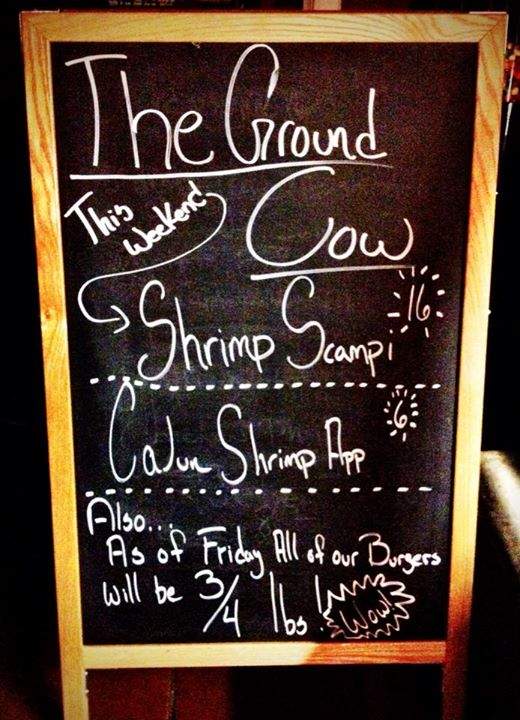 The Ground
Cow
This
Weekend
Shrimp Scampi 16
Cajun Shrimp App 6
Also...
As of Friday All of our Burgers
will be 3/4 lbs! Wow!